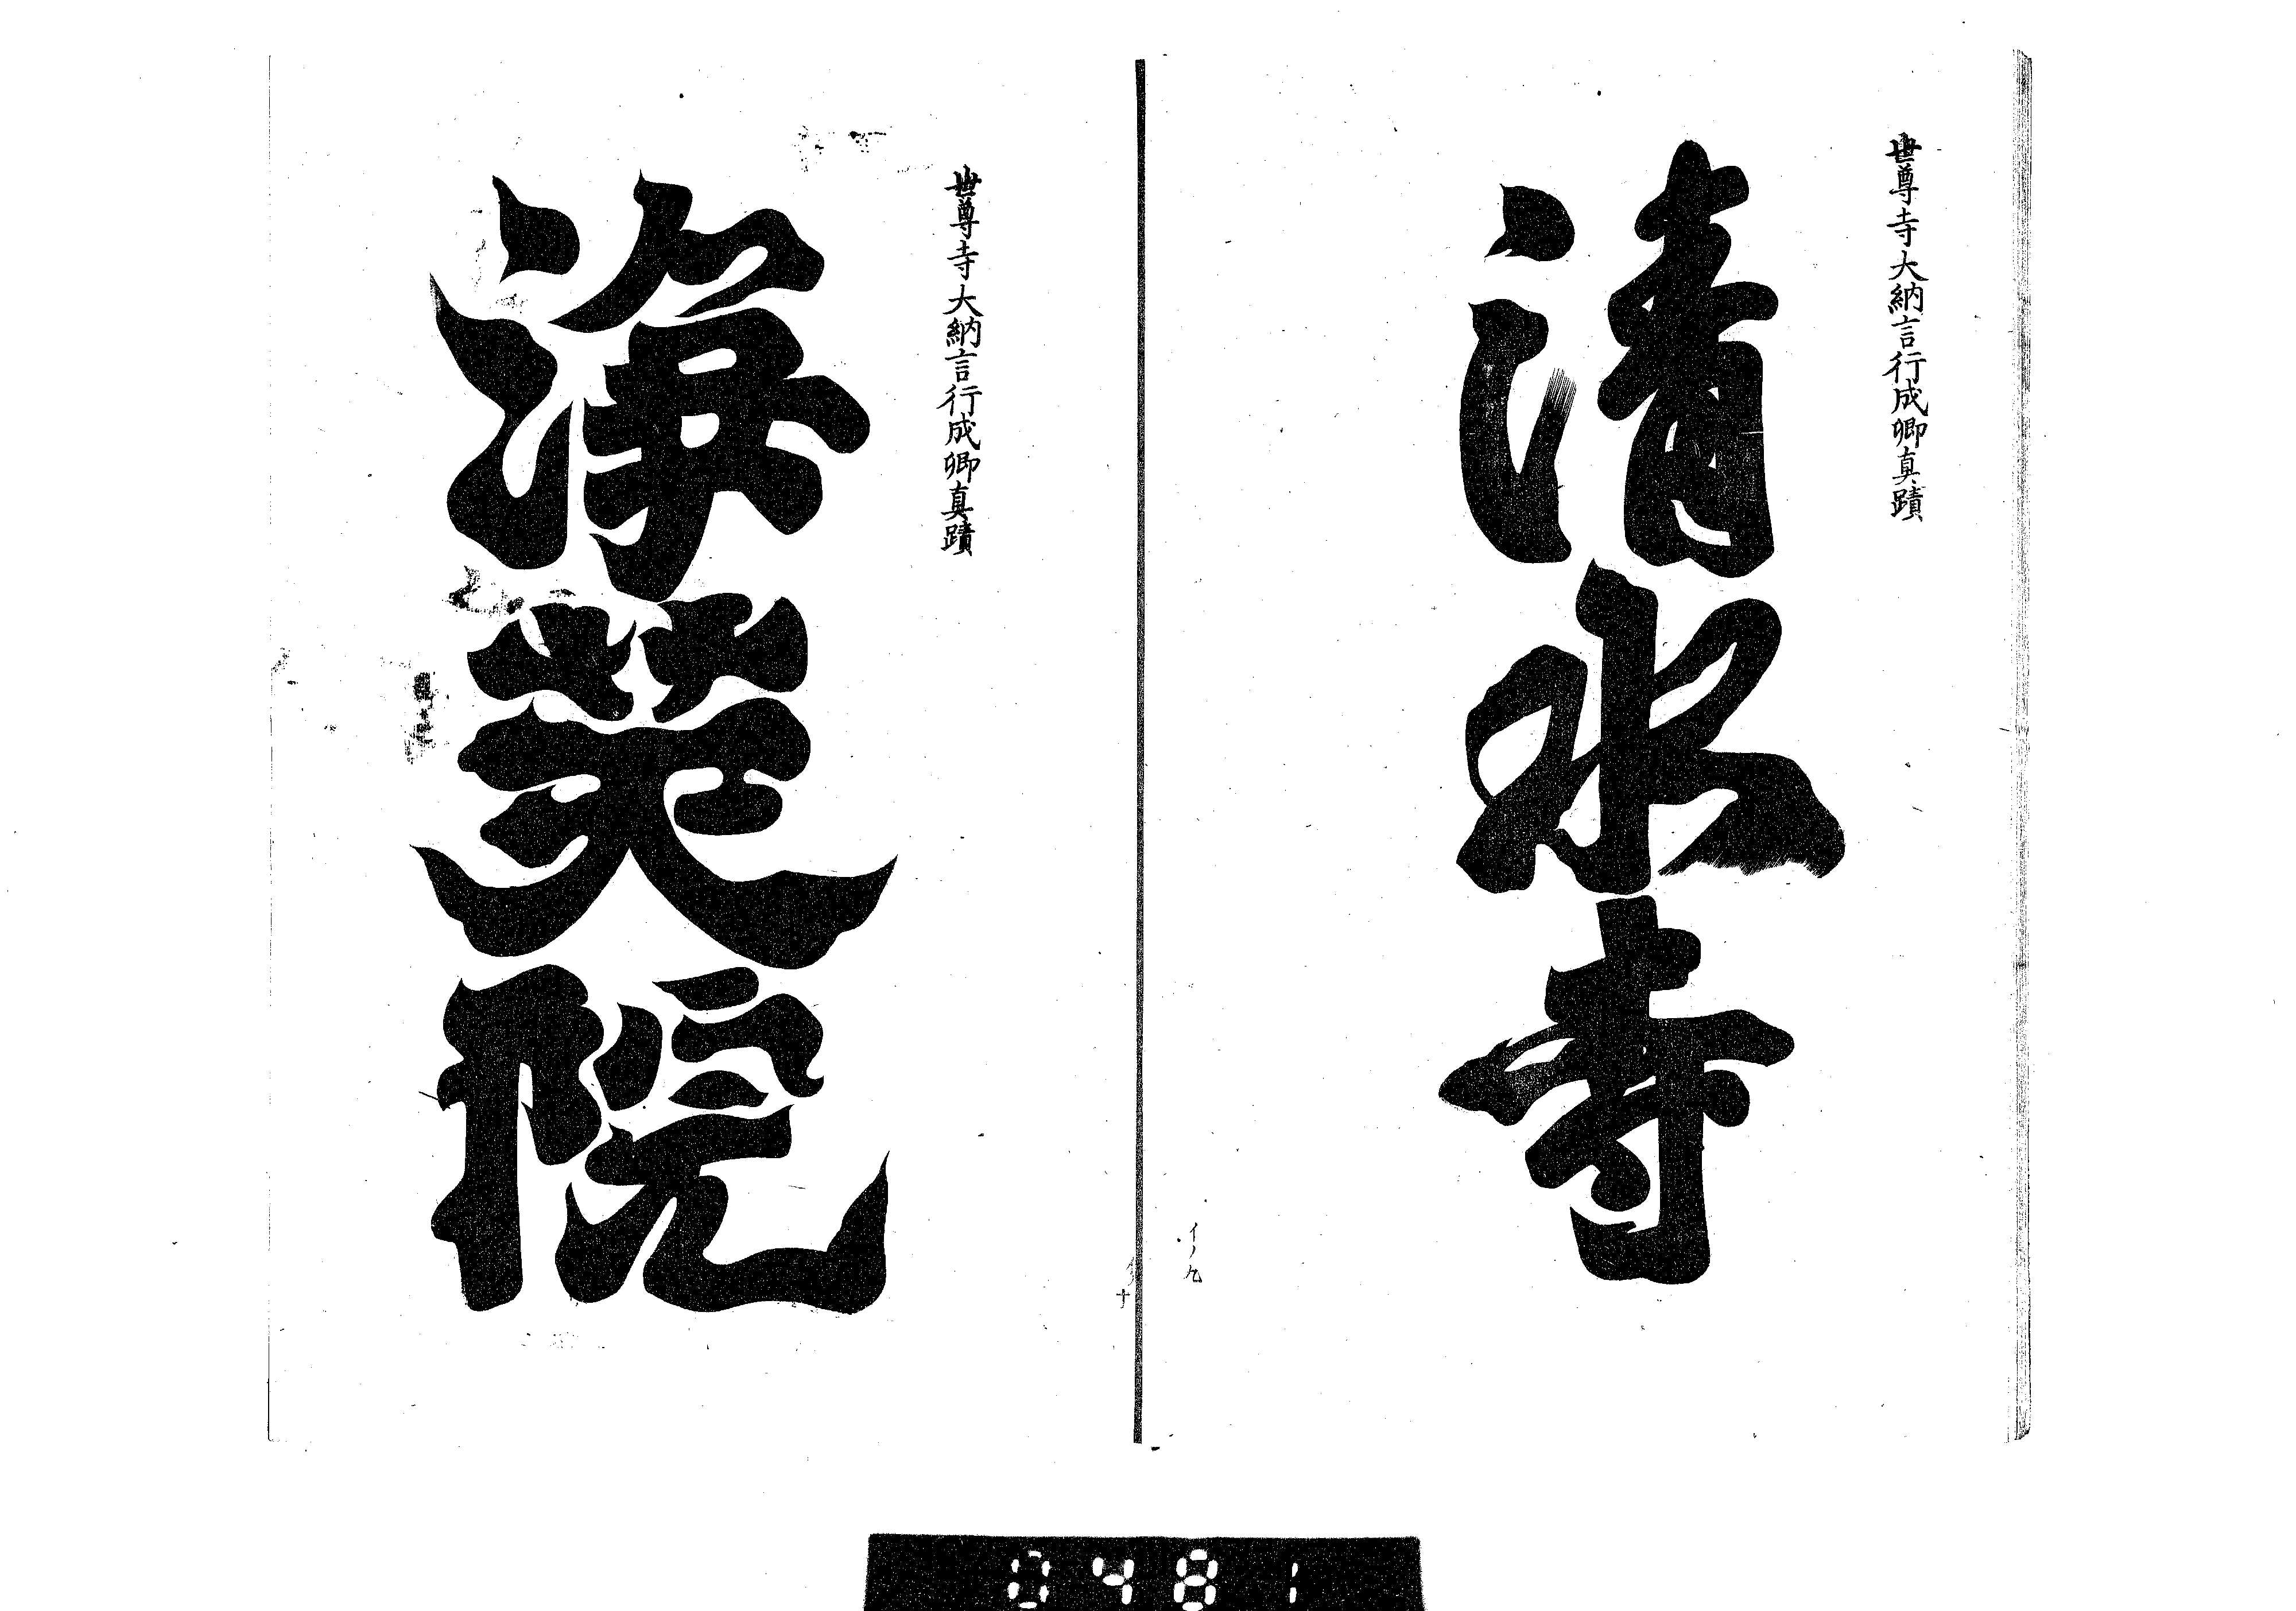 世尊寺大納言行成卿真蹟
清水寺
イノ九
世尊寺大納言行成卿真蹟
海芙院
十
0481